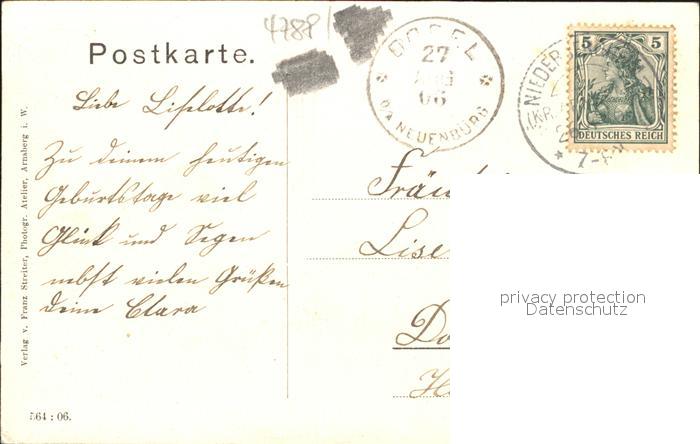 4789
Postkarte.
DOSEL
27
AUG
06
BA NEUENBURG
NIEDER
(KR.
7-8 N
5 5
DEUTSCHES REICH
Liebe Liselotte!
Zu deinem heutigen
Geburtstage viel
Glück und Segen
nebst vielen Grüßen
deine Clara
Fräu
Lise
Do
H
Verlag v. Franz Streiter, Photogr. Atelier, Arnsberg i. W.
564 : 06.
privacy protection
Datenschutz